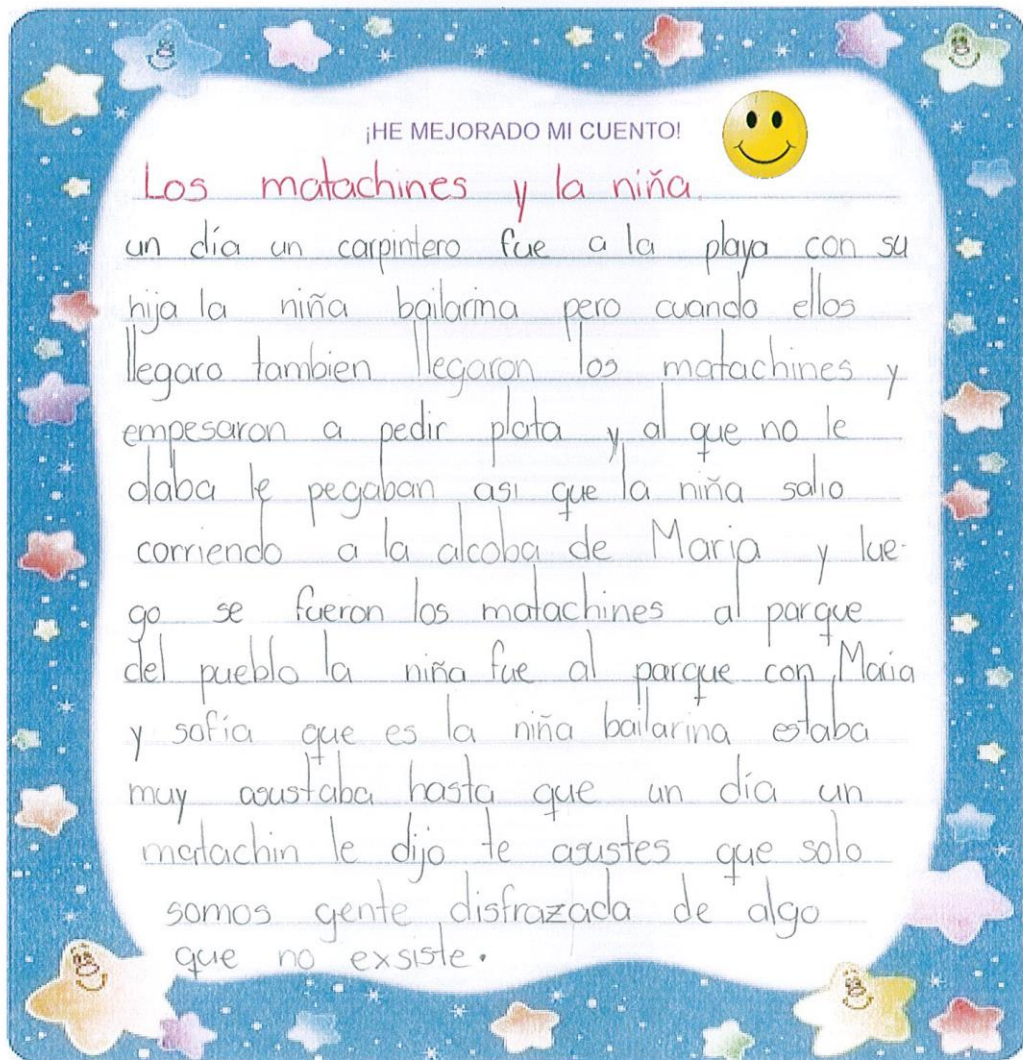 ¡HE MEJORADO MI CUENTO!
Los matachines y la niña.
un día un carpintero fue a la playa con su
hija la niña bailarina pero cuando ellos
llegaro tambien llegaron los matachines y
empesaron a pedir plata y al que no le
daba le pegaban asi que la niña salio
corriendo a la alcoba de Maria y lue-
go se fueron los matachines al parque
del pueblo la niña fue al parque con Maria
y sofía que es la niña bailarina estaba
muy asustaba hasta que un día un
matachin le dijo te asustes que solo
somos gente disfrazada de algo
que no exsiste.